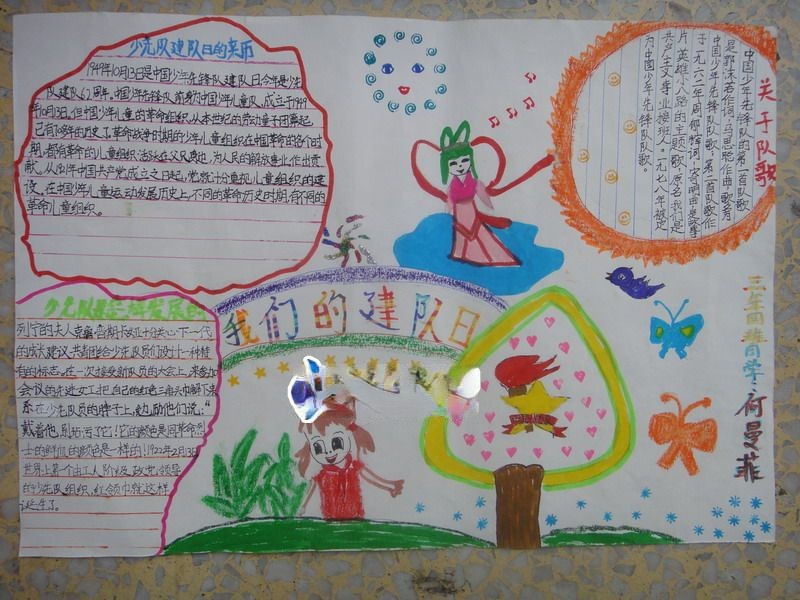 少先队建队日的来历
1949年10月13日是中国少年先锋队建队日今年是少先
队建队62周年。中国少年先锋队前身为中国少年儿童队,成立于1949
年10月13日。但中国少年儿童的革命组织,从本世纪的劳动童子团算起
已有
年的历史了。革命战争时期的少年儿童组织在中国革命的各个时
期,都有革命的儿童组织活跃在
为人民的解放事业,作出贡
献。从
中国共产党成立之日起,党就十分重视儿童组织的建
设。在中国少年儿童运动发展历史上,不同的革命历史时期,有不同的
革命儿童组织。
关于队歌
中国少年先锋队的第一首队歌
是郭沫若作词,马思聪作曲
中国少年先锋队队歌。第二首队歌作
于一九六一年,周郁辉词,寄明曲,是故事
片《英雄小八路》的主题歌,原名《我们是
共产主义事业接班人》。一九七八年被定
为中国少年先锋队队歌。
我们的建队日
少先队是怎样发展的
列宁的夫人克鲁普斯卡娅十分关心下一代
的成长,建议共青团给少先队员们设计一种特
有的标志。在一次接受新队员的大会上,来参加
会议的先进女工把自己的红色三角头巾解下来
系在少先队员的脖子上,勉励他们说:“
戴着他,别玷污了它!它的颜色是同革命烈
士的鲜血的颜色是一样的!1922年2月13日
世界上第一个由工人阶级及政党领导
的少先队组织,红领巾就这样
诞生了。
三年四班同学:何曼菲